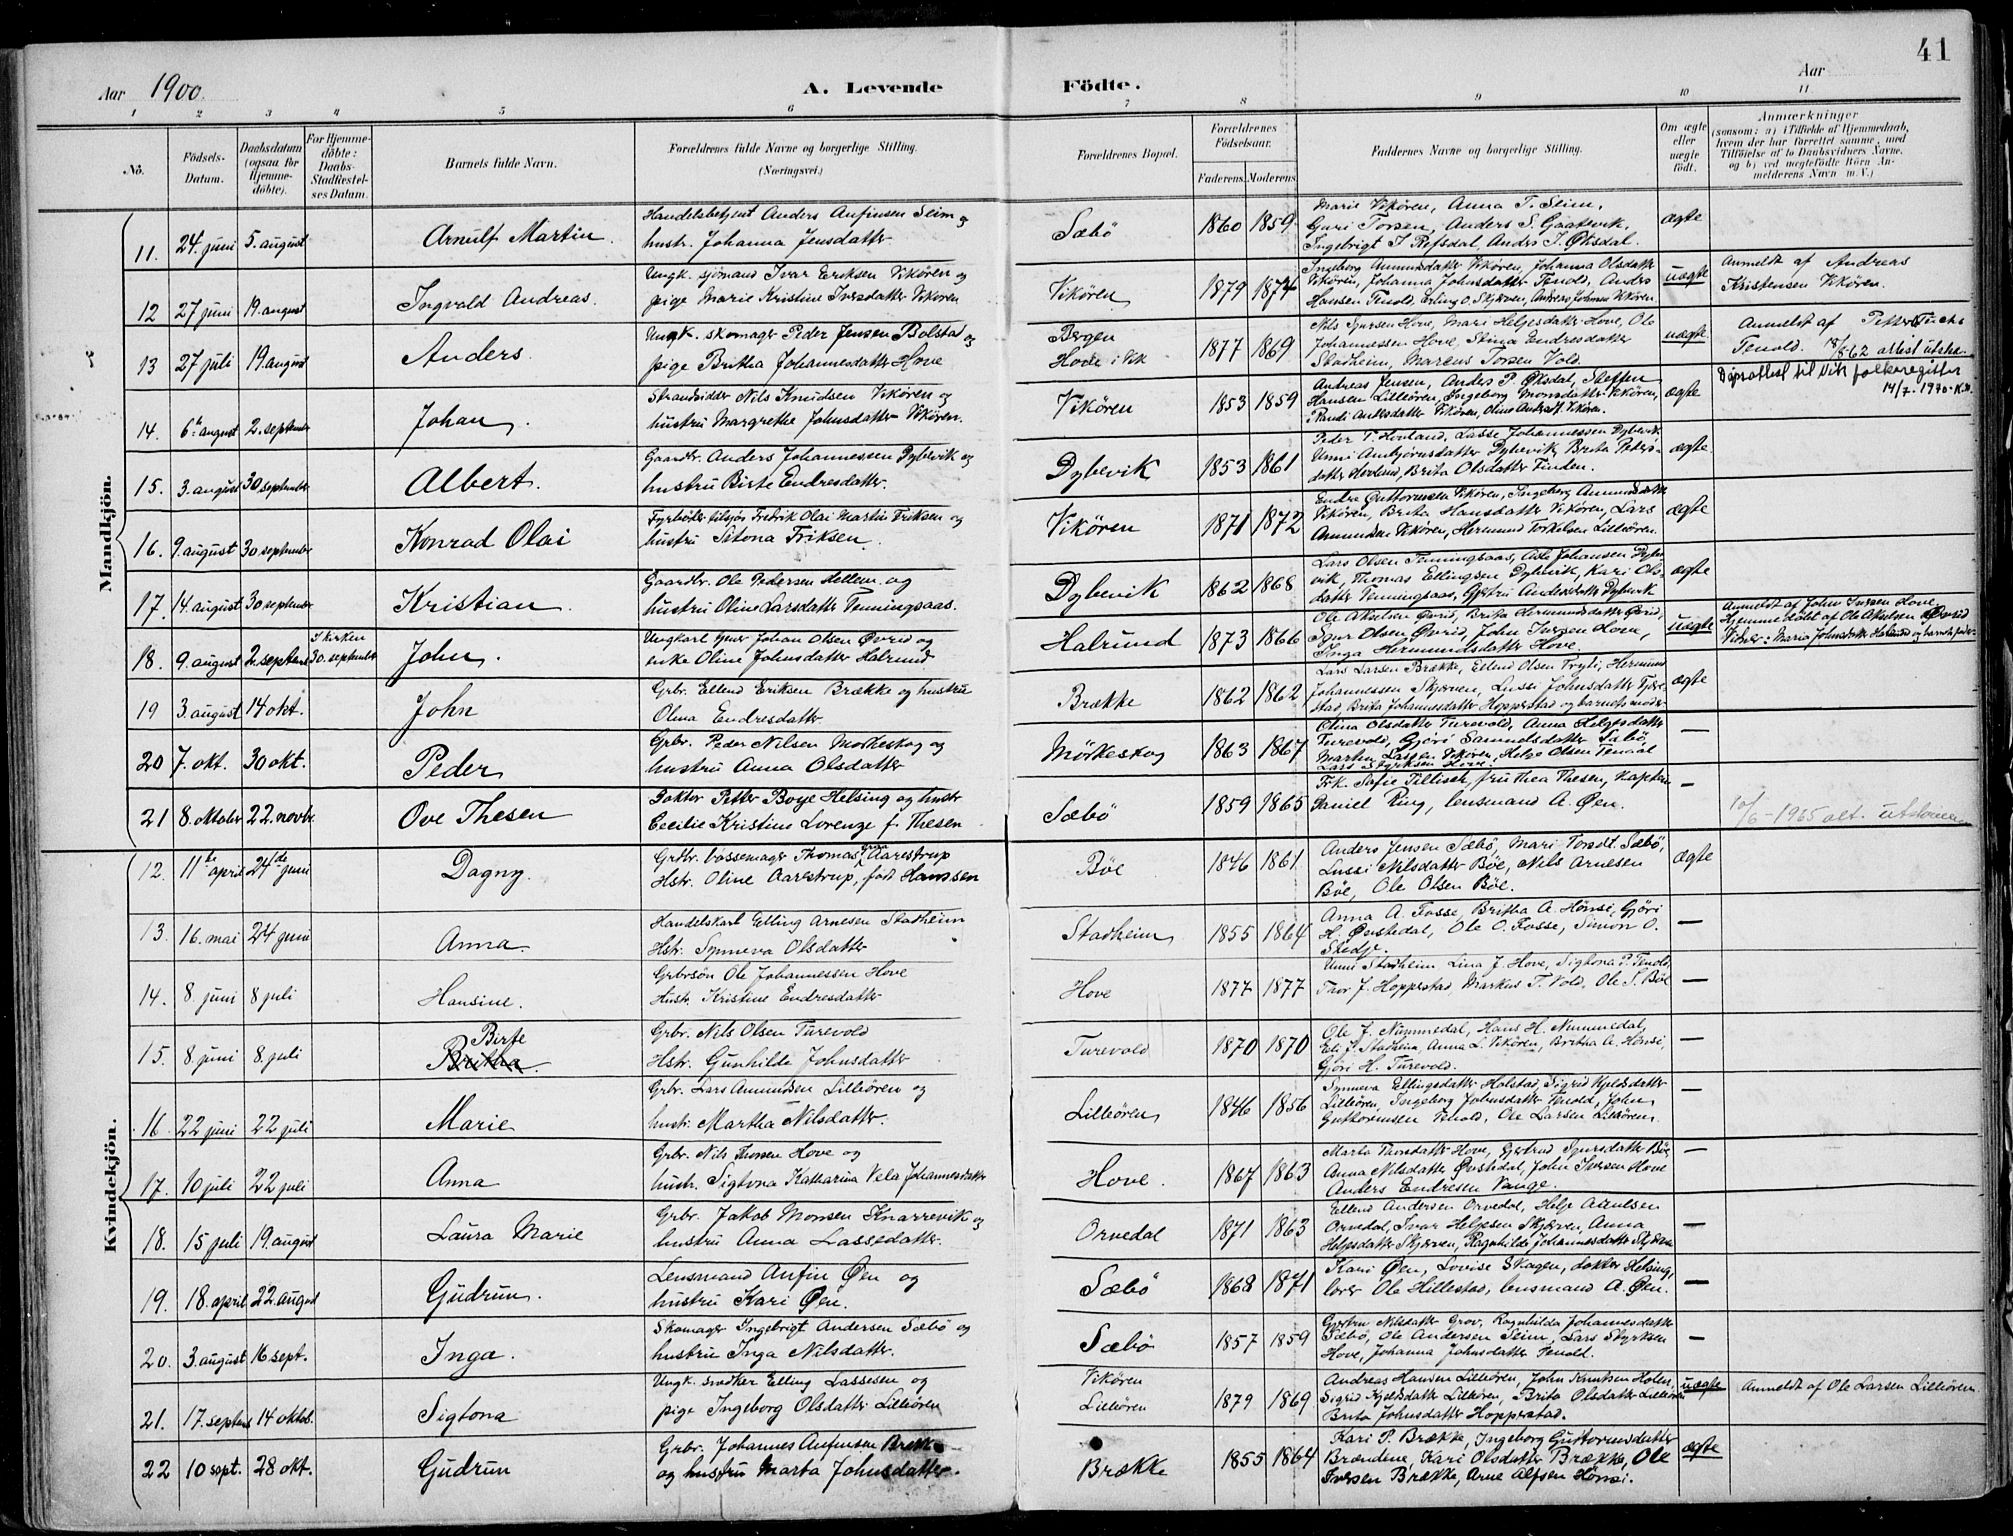 41
Aar 1900.
A. Levende Födte.
Aar
1 2 3 4 5 6 7 8 9 10 11
No.
Födsels-Datum.
Daabsdatum (ogsaa for Hjemmedöbte).
For Hjemmedöbte: Daabs-Stadfæstelses Datum.
Barnets fulde Navn.
Forældrenes fulde Navne og borgerlige Stilling. (Næringsvei.)
Forældrenes Bopæl.
Forældrenes Födselsaar.
Faderens. Moderens.
Faddernes Navne og borgerlige Stilling.
Om ægte eller uægte födt.
Anmærkninger (saasom: a) i Tilfælde af Hjemmedaab, hvem der har forrettet samme, med Tilföielse af to Daabsvidners Navne, og b) ved uægtefödte Börn Anmelderens Navn m. V.)
Mandkjön.
11. 24 juni 5. august Arnulf Martin. Handelsbetjent Anders Anfinsen Seim og
hustr. Johanna Jensdatter Sæbö 1860 1859 Marie Vikören, Anna T. Seim,
Guri Torsen, Anders S. Gaatevik,
Ingebrigt I Refsdal, Anders I. Öksdal. ægte
12 27 juni 19. august Ingvald Andreas. Ungk. sjömand Ivar Eriksen Vikören og
pige Marie Kristine Iversdatter Vikören Vikören 1879 1874 Ingeborg Anmunsdatter Vikören, Johanna Olsdatter
Vikören, Johanna Johnsdatter Tenold, Anders
Hansen Tenold, Erling O. Skjerven, Andreas Johnsen Vikören. uægte Anmeldt af Andreas
Kristensen Vikören.
13 27 juli 19. august Anders. Ungk. skomager Peder Jensen Bolstad og
pige Britha Johannesdatter Hove Bergen
Hove i Vik 1877 1869 Nils Sjursen Hove, Mari Helgesdatter Hove, Ole
Johannessen Hove, Stina Endresdatter
Stadheim, Marcus Torsen Vold. uægte Anmeldt af Petter
Tenold. 18/8-62 attest utsted.
14. 6te august 2. september Johan. Strandsidder Nils Knudsen Vikören og
hustru Margrethe Johnsdatter Vikören. Vikören 1853 1859 Andreas Jensen, Anders P. Öksdal, Steffen
Hansen Lilleören, Ingeborg Monsdatter Vikören,
Randi Andersdatter Vikören, Oline Vikören. ægte Dåpsattest til Vik folkeregister
14/7-1970
15. 3. august 30 september Albert. Gaardbr. Anders Johannessen Dybevik og
hustru Birte Endresdatter. Dybevik 1853 1861 Peder T. Hovland, Lasse Johannessen Dybevik
Unni Ambjörnsdatter Dybevik, Brita Peters-
datter Hovland, Brita Olsdatter Finden. ægte.
16. 9. august 30 september Konrad Olai Fyrböder tilsjøs Fredrik Olai Martin Eriksen og
hustru Sitona Eriksen. Vikören 1871 1872 Endre Guttormsen Vikören, Ingeborg Anmundsdatter
Vikören, Brita Hansdatter Vikören, Lars
Anmundsen Vikören, Hermund Torkelsen Lilleören. ægte
17. 14. august 30 september Kristian. Gaardbr. Ole Pedersen Hellem og
hustru Oline Larsdatter Tenningsaas. Dybevik 1862 1868 Lars Olsen Tenningsaas, Asle Johansen Dybe
vik, Thomas Ellingsen Dybevik, Kari Ols-
datter Tenningsaas, Gjertru Andersdatter Dybevik ægte
18. 9. august 2. september I kirken 30. september John. Ungkarl Sjur Johan Olsen Övrid og
enke Oline Johnsdatter Halrund Halrund 1873 1866 Ole Akselsen Övrid, Brita Hermundsdatter Övrid,
Sjur Olsen Övrid, John Iversen Hove,
Inga Hermundsdatter Hove. uægte Anmeldt af John Iversen Hove.
Hjemmedöbt af Ole Akselsen Övrid
Vidner: Maria Johnsdatter Halrund og barnets fader
19 3. august 14 okt. John Grbr. Ellend Eriksen Brække og hustru
Olina Endresdatter. Brække 1862 1862 Lars Larsen Brække, Ellend Olsen Tryti, Hermund
Johannessen Skjerven, Lussi Johnsdatter Fjære-
stad, Brita Johannesdatter Hopperstad og barnets moder. ægte
20 7. okt. 30 okt. Peder Grbr. Peder Nilsen Mörkeskog og
hustru Anna Olsdatter Mörkeskog 1863 1867 Olina Olsdatter Turevold, Anna Helgesdatter
Turevold, Gjöri Samuelsdatter Sæbö
Martin Lassen Vikören, Helge Olsen Tenold
Lars Styrksen Hove. —
21 8. oktober 22. novbr. Ove Thesen Doktor Petter Boye Helsing og hustr
Cecilie Kristine Lorenze f. Thesen Sæbö 1859 1865 Frk. Sofie Tillisch, fru Thea Thesen, kaptein
Daniel Ring, lensmand A. Öen. — 10/6-1965 att.
Kvindekjön.
12. 11te april 24de juni Dagny. Grdbr. bössemager Thomas Aarestrup
Hstr. Oline Aarestrup, född Hanssen Böe 1846 1861 Anders Jensen Sæbö, Mari Torsdt Sæbö,
Lussi Nilsdatter Böe, Nils Arnesen
Böe, Ole Olsen Böe. ægte
13. 16. mai 24 juni Anna. Handelskarl Elling Arnesen Stadheim
Hstr. Synneva Olsdatter Stadheim 1855 1864 Anna A. Fosse, Britha A. Hönsi, Gjöri
H. Övstedal, Ole O. Fosse, Simon O.
Skedje. —
14. 8. juni 8 juli Hansine. Grbrsön Ole Johannessen Hove
Hustr. Kristine Endresdatter Hove 1877 1877 Unni Stadheim Lina J. Hove, Sigtona P. Tenold,
Thor J. Hopperstad, Markus T. Vold, Ole S. Böe —
15. 8. juni 8. juli Birte
Britha. Grbr. Nils Olsen Turevold
Hstr. Gunhilde Johnsdatter Turevold 1870 1870 Ole J. Nummedal, Hans H. Nummedal,
Eli J. Stadheim, Anna L. Vikören, Britha A. Hönsi,
Gjöri H. Turevold. —
16. 22 juni 22 juli Marie Grbr. Lars Anmundsen Lilleören og
hustr. Martha Nilsdatter. Lilleören 1846 1856 Synneva Ellingsdatter Holstad, Sigrid Kjelsdatter
Lilleören, Ingeborg Johnsdatter Tenold, John
Guttormsen Tenold, Ole Larsen Lilleören. —
17. 10 juli 22 juli Anna Grbr. Nils Thorsen Hove og
hustr. Sigtona Katharina Vela Johannesdatter Hove. 1867 1863 Marta Thorsdatter Hove, Gjertrud Sjursdatter Böe
Anna Nilsdatter Övstedal, John Iversen Hove
Anders Endresen Vange. —
18. 15 juli 19. august Laura Marie Grbr. Jakob Monsen Knarrevik og
hustru Anna Lassedatter. Orvedal 1871 1863 Ellend Andersen Orvedal, Helje Arnesen
Orvedal, Ivar Helgesen Skjerven, Anna
Helgesdatter Skjerven, Ragnhilda Johannesdatter Skjerven —
19. 18. april 22. august Gudrun. Lensmand Anfin Öen og
hustru Kari Öen. Sæbö 1868 1871 Kari Öen, Lovise Skagen, doktor Helsing,
lærer Ole Hillestad, lensmand A. Öen. —
20. 3. august 16 sept. Inga. Skomager Ingebrigt Andersen Sæbö og
hustru Inga Nilsdatter. Sæbö 1857 1859 Gjertru Nilsdatter Grov, Ragnhilda Johannesdatter
Sæbö, Ole Andersen Seim, Lars Styrksen
Hove, Johanna Johnsdatter Tenold. —
21. 17. septem 14 oktob. Sigtona Ungk. snedker Elling Lassesen og
pige Ingeborg Olsdatter Lilleören Vikören
Lilleören 1879 1869 Andreas Hansen Lilleören, John Knutsen Holen,
Sigrid Kjelsdatter Lilleören, Brita Olsdatter Lilleören
Brita Johnsdatter Hopperstad. uægte Anmeldt af Ole Larsen Lilleören.
22 10 sept. 28 okt. Gudrun Grbr. Johannes Anfinsen Brekke
og hustru Marta Johnsdatter. Brække 1855 1864 Kari P. Brække, Ingeborg Guttormsdatter
Brændene, Kari Olsdatter Brække, Ole
Iversen Brække, Arne Alfsen Hönsi. ægte